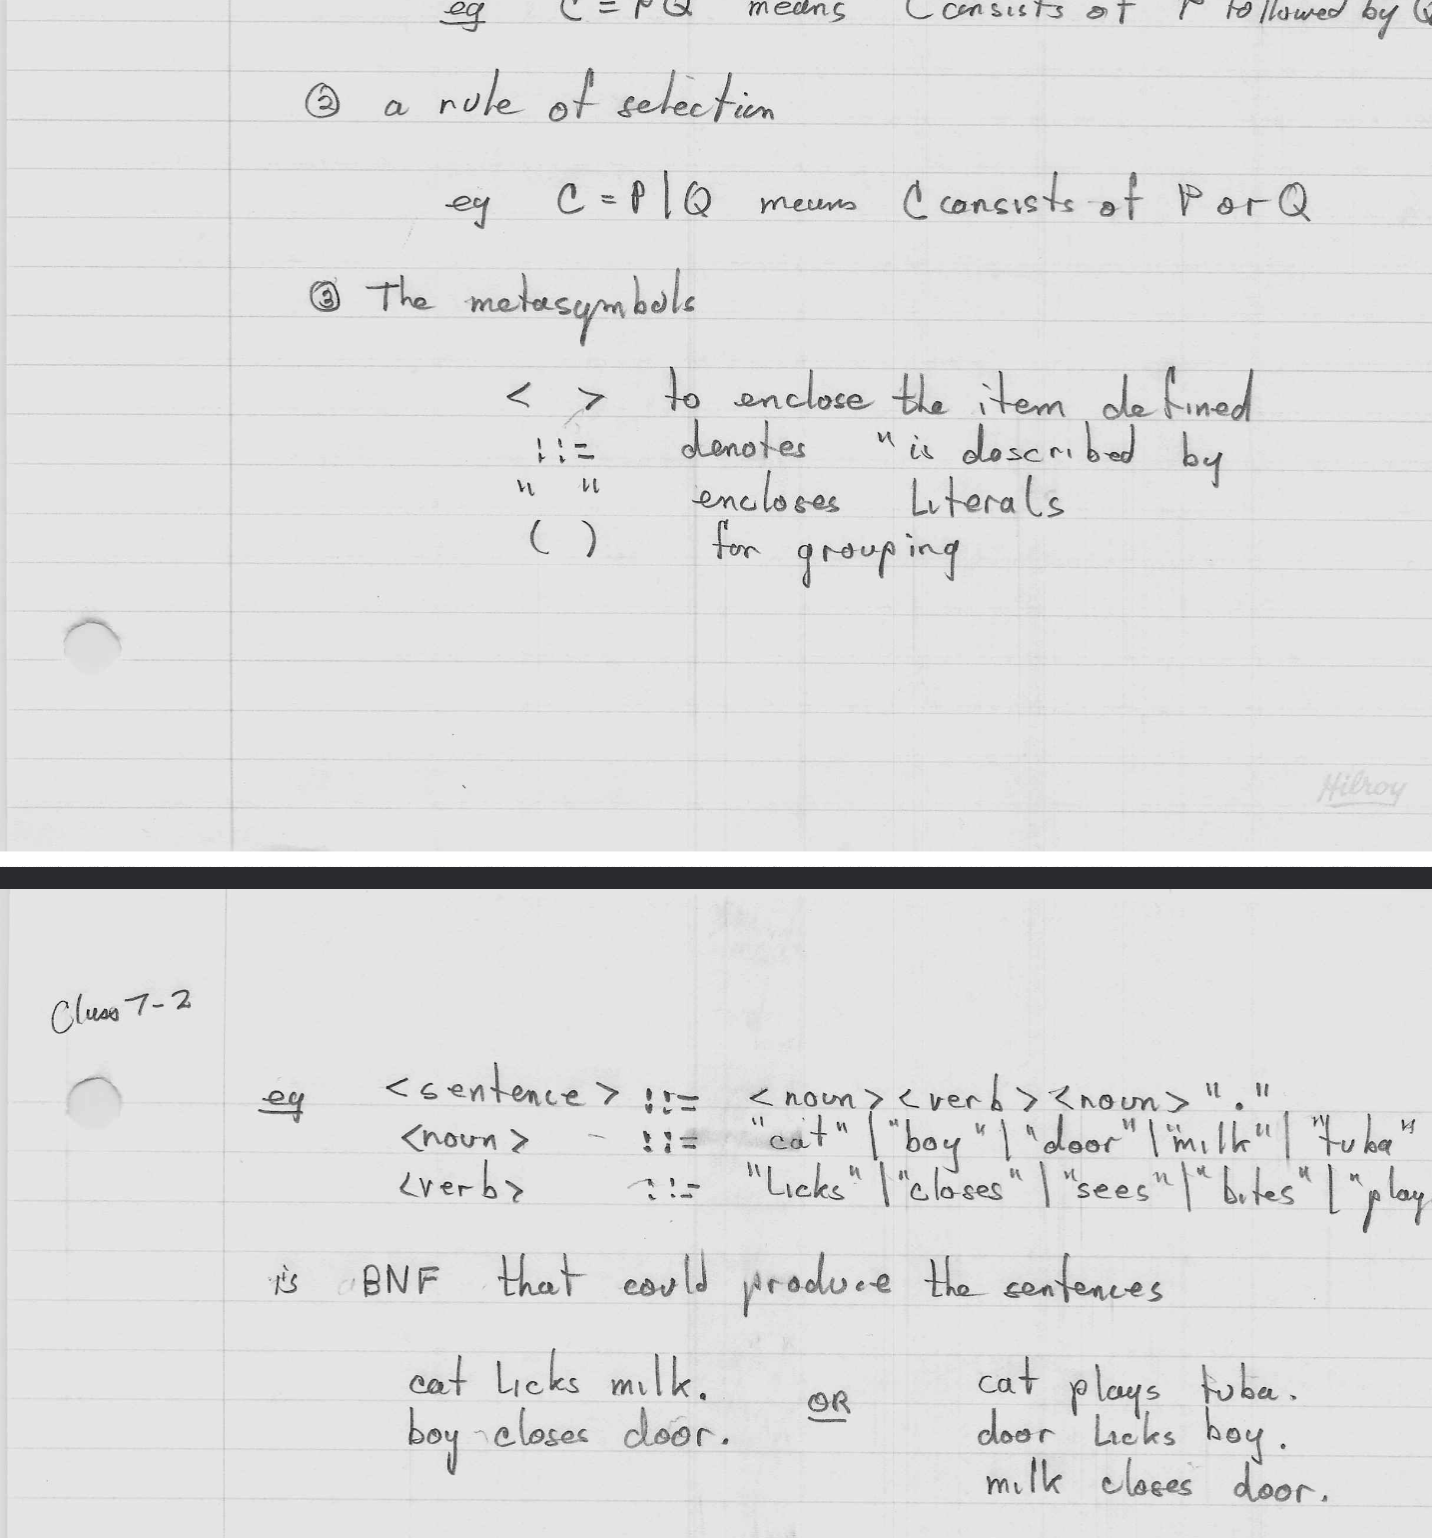 eg C = PQ means C consists of P followed by Q
② a rule of selection
eg C = P | Q means C consists of P or Q
③ The metasymbols
< > to enclose the item defined
::= denotes "is described by
" " encloses Literals
( ) for grouping
Hilroy
Class 7-2
eg <sentence> ::= <noun><verb><noun>"."
<noun> ::= "cat" | "boy" | "door" | "milk" | "tuba"
<verb> ::= "Licks" | "closes" | "sees" | "bites" | "play
is BNF that could produce the sentences
cat Licks milk. OR cat plays tuba.
boy closes door. door Licks boy.
milk closes door.